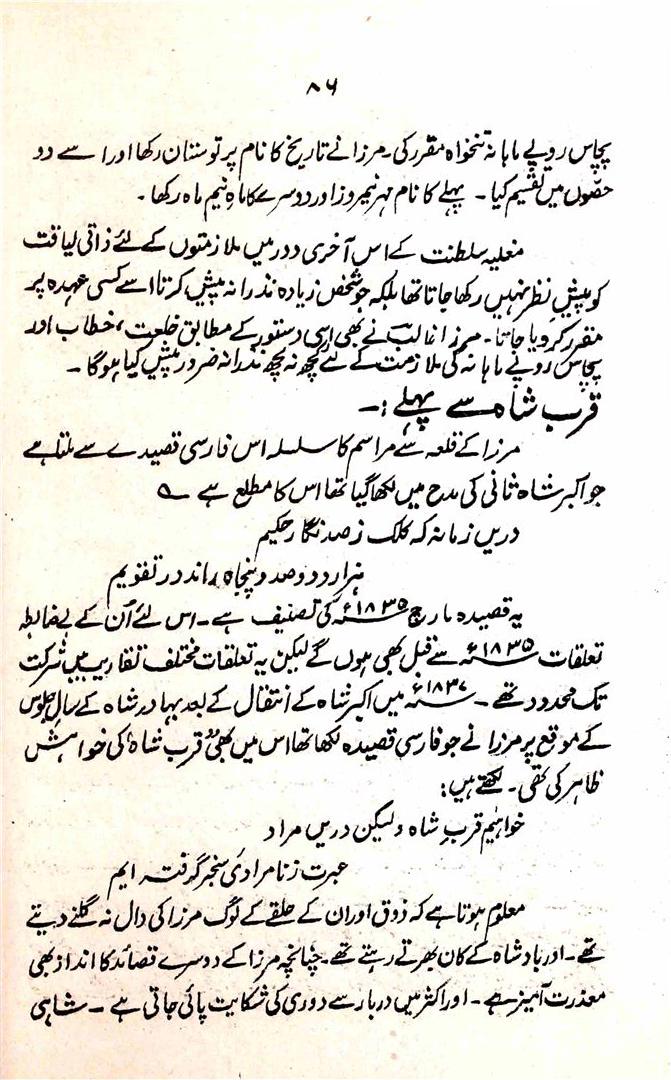 ۸۶
پچاس روپے ماہانہ تنخواہ مقرر کی۔ مرزا نے تاریخ کا نام پرتوستان رکھا اور اسے دو
حصّوں میں تقسیم کیا۔ پہلے کا نام مہر نیمروز اور دوسرے کا ماہِ نیم ماہ رکھا۔
مغلیہ سلطنت کے اس آخری دور میں ملازمتوں کے لئے ذاتی لیاقت
کو پیشِ نظر نہیں رکھا جاتا تھا بلکہ جو شخص زیادہ نذرانہ پیش کرتا اسے کسی عہدہ پر
مقرر کر دیا جاتا۔ مرزا غالب نے بھی اسی دستور کے مطابق خلعت، خطاب اور
پچاس روپے ماہانہ کی ملازمت کے لئے کچھ نہ کچھ نذرانہ ضرور پیش کیا ہوگا۔
قربِ شاہ سے پہلے :۔
مرزا کے قلعہ سے مراسم کا سلسلہ اس فارسی قصیدے سے ملتا ہے
جو اکبر شاہ ثانی کی مدح میں لکھا گیا تھا اس کا مطلع ہے ؎
دریں زمانہ کہ کلک رصد نگار حکیم
ہزار و دو صد و پنجاہ راند در تقویم
یہ قصیدہ مارچ ۱۸۳۵ء کی تصنیف ہے۔ اس لئے اُن کے بے ضابطہ
تعلقات ۱۸۳۵ء سے قبل بھی ہوں گے لیکن یہ تعلقات مختلف تقاریب میں شرکت
تک محدود تھے۔ ۱۸۳۷ء میں اکبر شاہ کے انتقال کے بعد بہادر شاہ کے سالِ جلوس
کے موقع پر مرزا نے جو فارسی قصیدہ لکھا تھا اس میں بھی "قربِ شاہ" کی خواہش
ظاہر کی تھی۔ لکھتے ہیں:
خواہیم قربِ شاہ ولیکن دریں مراد
عبرت ز نامرادیٔ سنجر گرفتہ ایم
معلوم ہوتا ہے کہ ذوق اور ان کے حلقے کے لوگ مرزا کی دال نہ گلنے دیتے
تھے۔ اور بادشاہ کے کان بھرتے رہتے تھے۔ چنانچہ مرزا کے دوسرے قصائد کا انداز بھی
معذرت آمیز ہے۔ اور اکثر میں دربار سے دوری کی شکایت پائی جاتی ہے۔ شاہی